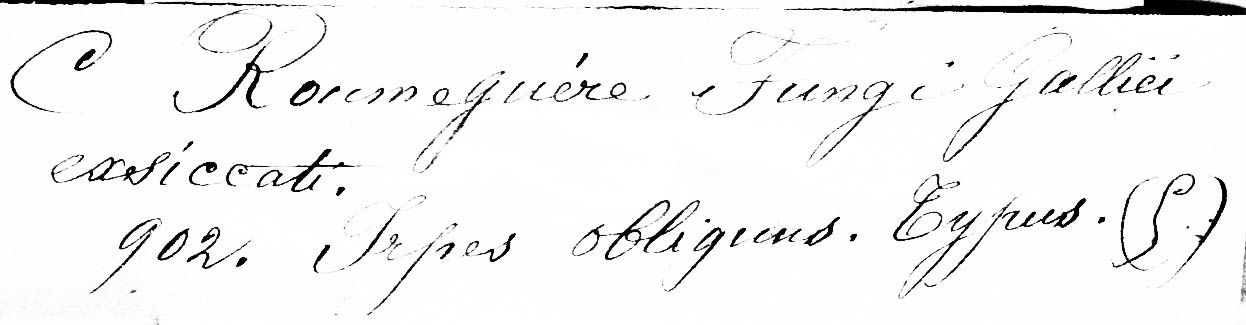 C Roumeguére Fungi Gallici
exsiccati.
902. Irpes obliquus. Typus. (